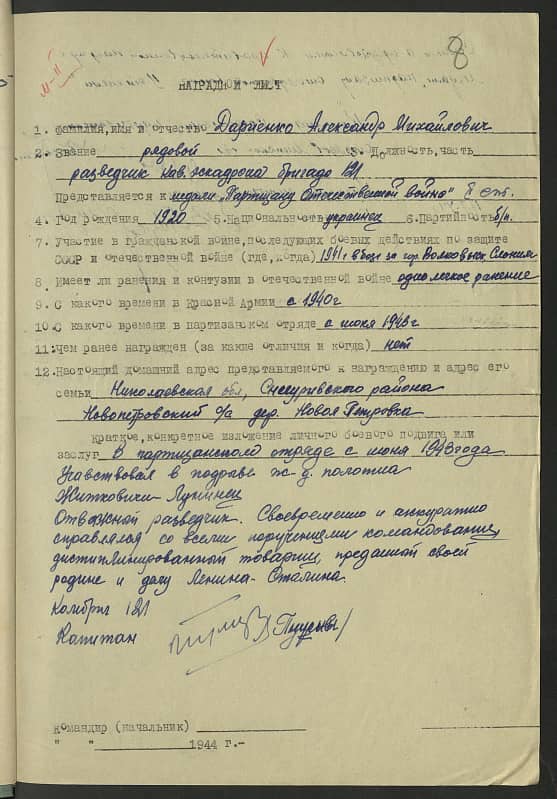 8
НАГРАДНОЙ ЛИСТ
1. Фамилия,имя и отчество Дарченко Александр Михайлович
2. Звание рядовой 3. Должность,часть
разведчик кав. эскадрона бригада 121
Представляется к медали "Партизану Отечественной война" II ст.
4. Год рождения 1920 5.Национальность украинец 6.Партийность б/п.
7. Участие в гражданской войне,последующих боевых действиях по защите
СССР и отечественной войне (где,когда) 1941г. в боях за гор. Волковыск, Слоним
8. Имеет ли ранения и контузии в отечественной войне одно легкое ранение
9. С какого времени в Красной Армии с 1940г
10. С какого времени в партизанском отряде с июня 1943г
11. Чем ранее награжден (за какие отличия и когда) нет
12. Настоящий домашний адрес представляемого к награждению и адрес его
семьи Николаевская обл, Снегуривского района
Новопетровский с/с дер. Новая Петровка
Краткое,конкретное изложение личного боевого подвига или
заслуг В партизанского отряде с июня 1943 года
Участвовал в подраве ж-д. полотна
Житковичи - Лунинец
Отважной разведчик. Своевременно и аккуратно
справлялся со всеми поручениями командования,
дистиплинированной товарищ, преданной своей
родине и делу Ленина - Сталина.
Комбриг 121
Капитан
Командир (начальник)
" " 1944 г.-